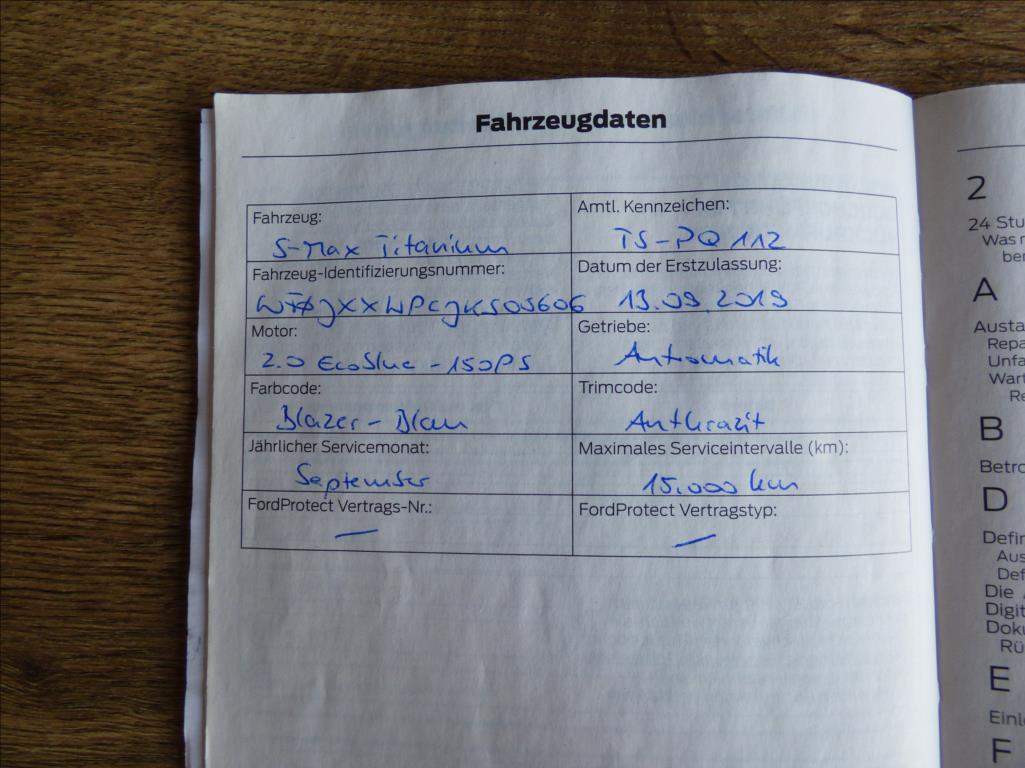 Fahrzeugdaten
Fahrzeug:
S-Max Titanium
Amtl. Kennzeichen:
TS-PQ 112
Fahrzeug-Identifizierungsnummer:
WFØJXXWPCJKS09606
Datum der Erstzulassung:
13.09.2019
Motor:
2.0 EcoBlue - 150PS
Getriebe:
Automatik
Farbcode:
Blazer-Blau
Trimcode:
Anthrazit
Jährlicher Servicemonat:
September
Maximales Serviceintervalle (km):
15.000 km
FordProtect Vertrags-Nr.:
—
FordProtect Vertragstyp:
—
2
24 Stu
Was
ber
A
Austa
Repa
Unfa
Wart
Re
B
Betro
D
Defin
Aus
Def
Die
Digit
Doku
Rü
E
Einle
F